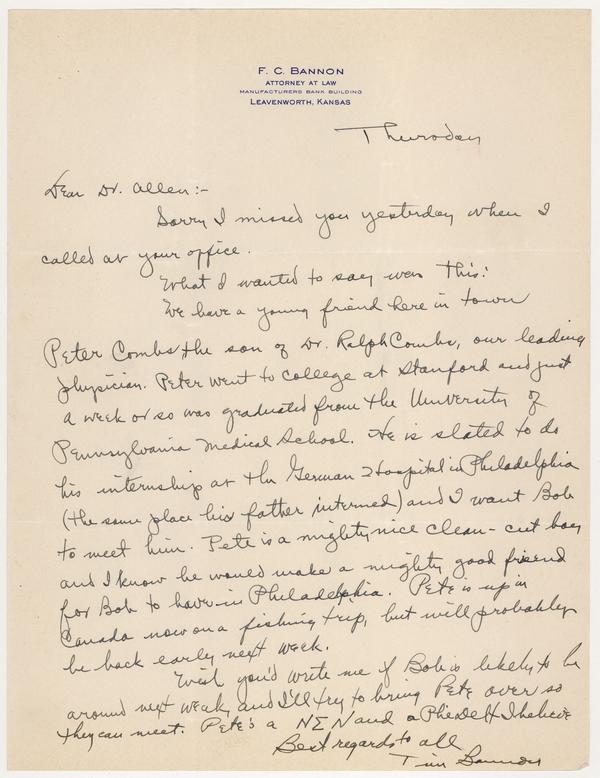 F. C. BANNON
ATTORNEY AT LAW
MANUFACTURERS BANK BUILDING
LEAVENWORTH, KANSAS
Thursday
Dear Dr. Allen:-
Sorry I missed you yesterday when I
called at your office.
What I wanted to say was this:
We have a young friend here in town
Peter Combs the son of Dr. Ralph Combs, our leading
physician. Peter went to college at Stanford and just
a week or so was graduated from the University of
Pennsylvania Medical School. He is slated to do
his internship at the German Hospital in Philadelphia
(the same place his father interned) and I want Bob
to meet him. Pete is a mighty nice clean-cut boy
and I know he would make a mighty good friend
for Bob to have in Philadelphia. Pete is up in
Canada now on a fishing trip, but will probably
be back early next week.
Wish you'd write me if Bob is likely to be
around next week, and I'll try to bring Pete over so
they can meet. Pete's a N Σ N and a Phi Delt I believe
Best regards to all
Tim Bannon